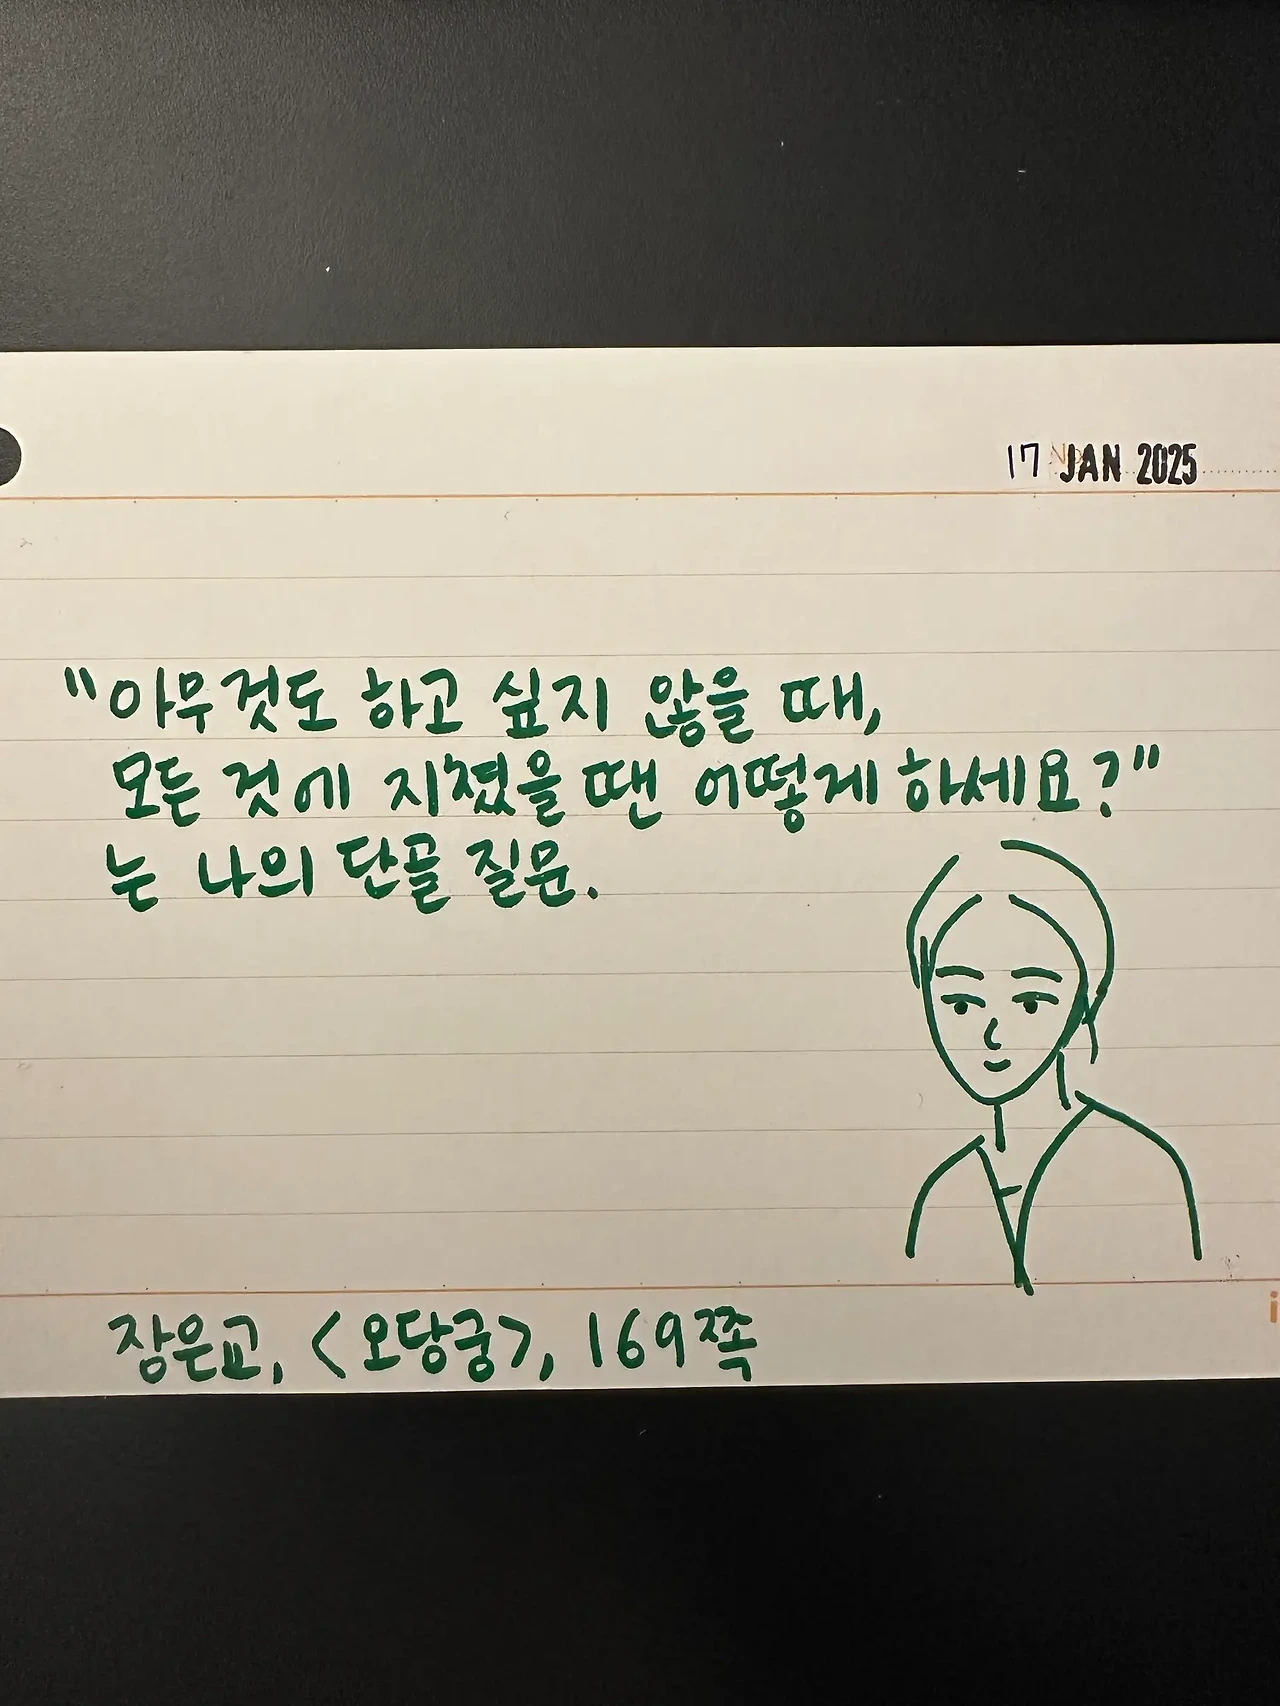 17 JAN 2025
"아무것도 하고 싶지 않을 때,
모든 것에 지쳤을 땐 어떻게 하세요?"
는 나의 단골 질문.
장은교, <오당궁>, 169쪽